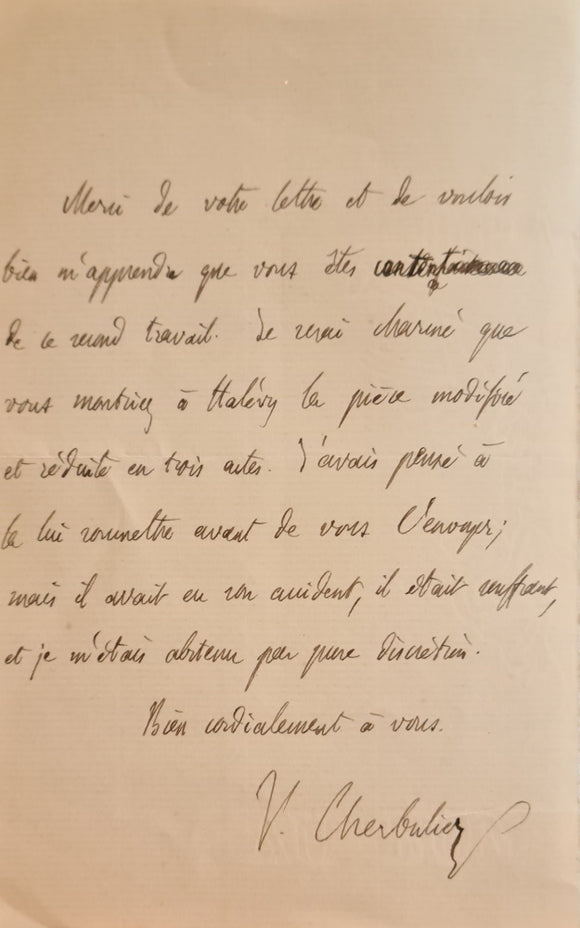 Merci de votre lettre et de vouloir
bien m'apprendre que vous êtes
de ce second travail. Je serai charmé que
vous montriez à Halévy la pièce modifiée
et réduite en trois actes. J'avais pensé à
la lui soumettre avant de vous l'envoyer;
mais il avait eu son accident, il était souffrant,
et je m'étais abstenu par pure discrétion.
Bien cordialement à vous.
V. Cherbuliez